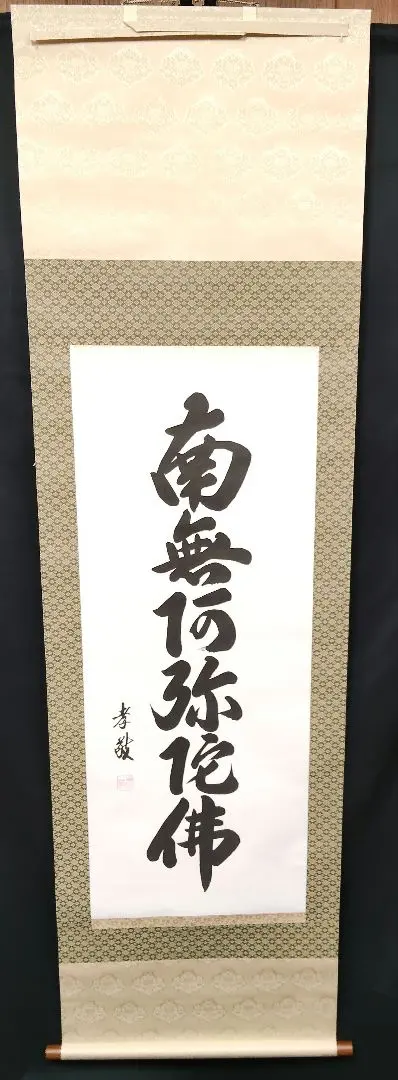 南無阿弥陀佛
孝敬